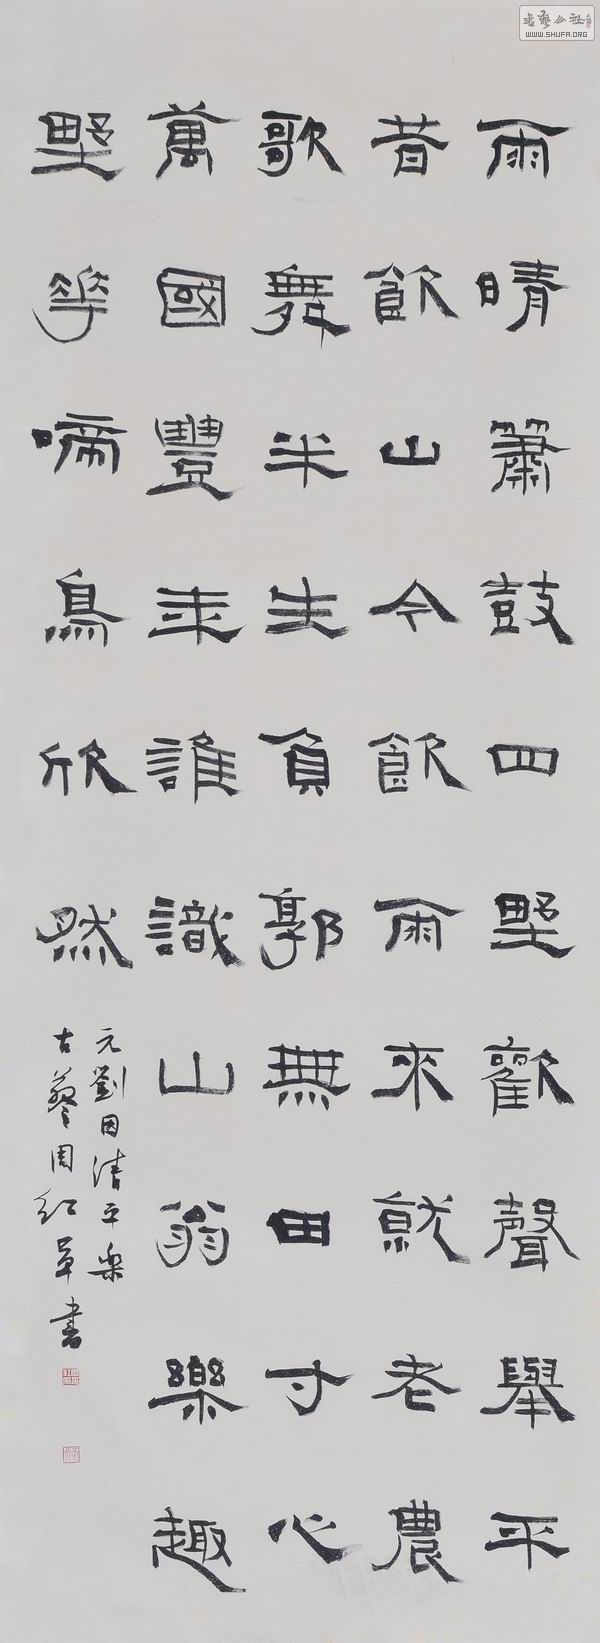 雨晴簫鼓四野歡聲舉平
昔飲山今飲雨來就老農
歌舞半生負郭無田寸心
萬國豐年誰識山翁樂趣
野花啼鳥欣然
元劉因清平樂
古蓼周紅軍書
書藝公社
WWW.SHUFA.ORG